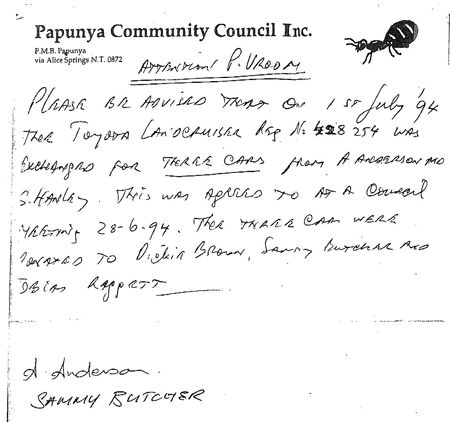 Papunya Community Council Inc.
P.M.B. Papunya
via Alice Springs N.T. 0872
ATTENTION! P. VROOM
PLEASE BE ADVISED THAT ON 1ST July '94
THE TOYOTA LANDCRUISER Reg No 254 WAS
EXCHANGED FOR THREE CARS from A ANDERSON AND
S. HANLEY. THIS WAS AGREED TO AT A COUNCIL
MEETING 28-6-94. THE THREE CARS WERE
DONATED TO Dickie BROWN, SAMMY BUTCHER AND
OBIAS RAGGETT
A Anderson
SAMMY BUTCHER